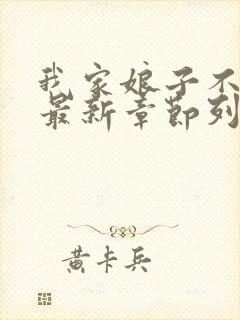 我家娘子不
最新章節列
黄卡兵